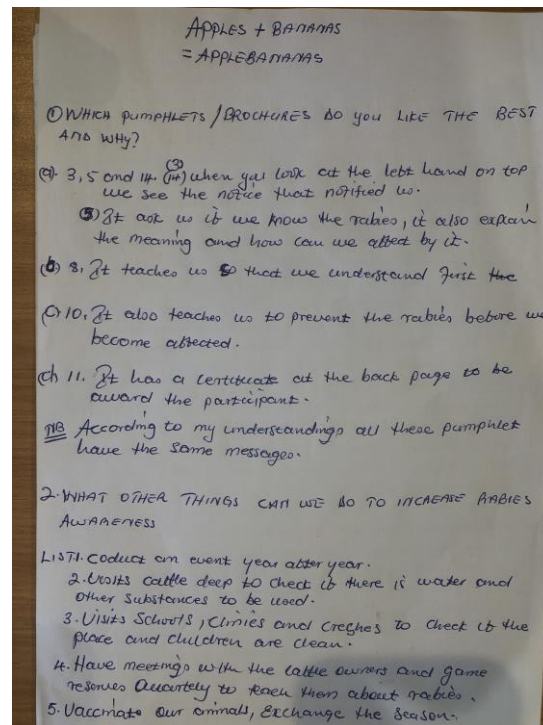 APPLES + BANANAS
= APPLEBANANAS
① WHICH PUMPHLETS / BROCHURES DO YOU LIKE THE BEST
AND WHY?
(a). 3, 5 and 14. (3) (14) when you look at the left hand on top
we see the notice that notified us.
⑤ It ask us if we know the rabies, it also explain
the meaning and how can we affect by it.
(b) 8. It teaches us that we understand first the
(c) 10. It also teaches us to prevent the rabies before we
become affected.
(d) 11. It has a certificate at the back page to be
award the participant.
NB According to my understandings all these pumphlet
have the same messages.
2. WHAT OTHER THINGS CAN WE DO TO INCREASE RABIES
AWARENESS
LIST 1. Coduct an event year after year.
2. Visits cattle deep to check if there is water and
other substances to be used.
3. Visits Schools, Clinics and Creches to check if the
place and children are clean.
4. Have meetings with the cattle owners and game
reserves Quartely to teach them about rabies.
5. Vaccinate our animals, Exchange the season.